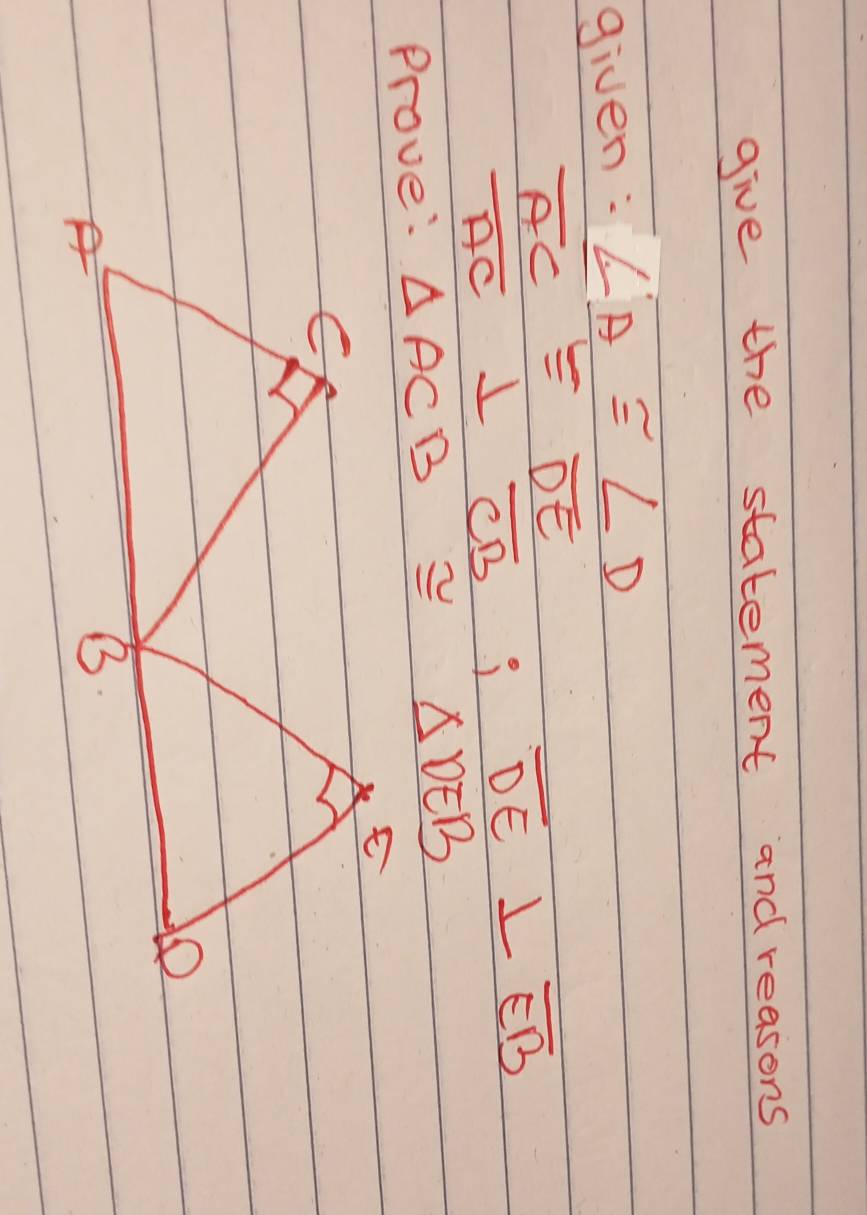 give the statement and reasons
given: ∠A ≅ ∠D
A̅C̅ ≅ D̅E̅
A̅C̅ ⊥ C̅B̅ ; D̅E̅ ⊥ E̅B̅
Prove: Δ ACB ≅ Δ DEB
C
E
A
B
D